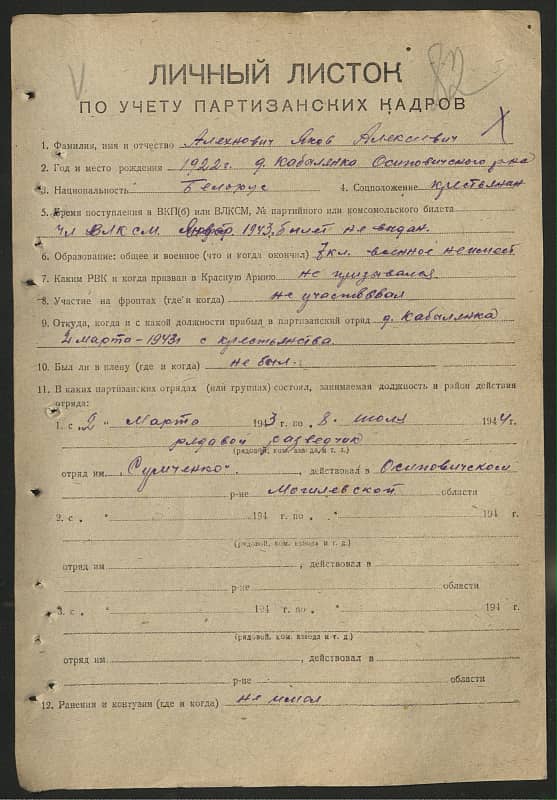 82
ЛИЧНЫЙ ЛИСТОК
ПО УЧЕТУ ПАРТИЗАНСКИХ КАДРОВ
1. Фамилия, имя и отчество Алехнович Яков Алексеевич
2. Год и место рождения 1922г. д. Кабылянка Осиповичского р-на
3. Национальность Белорус 4. Соцположение крестьянин
5. Время поступления в ВКП(б) или ВЛКСМ, № партийного или комсомольского билета
чл ВЛКСМ. Январ 1943, билет не выдан.
6. Образование: общее и военное (что и когда окончил) 7кл. военное не имеет
7. Каким РВК и когда призван в Красную Армию не призывался
8. Участие на фронтах (где и когда) не участвывал
9. Откуда, когда и с какой должности прибыл в партизанский отряд д. Кабылянка
2 марта-1943г с крестьянства
10. Был ли в плену (где и когда) не был.
11. В каких партизанских отрядах (или группах) состоял, занимаемая должность и район действия
отряда:
1. с „2" Марта 1943 г. по 8. июля 1944г.
рядовой разведчик
(рядовой, ком. взвода и т. д.)
отряд им „Сумченко", действовал в Осиповичском
р-не Могилевской области
2. с „ " 194 г. по „ " 194 г.
(рядовой, ком. взвода и т. д.)
отряд им , действовал в
р-не области
3. с „ " 194 г. по „ " 194 г.
(рядовой, ком. взвода и т. д.)
отряд им , действовал в
р-не области
12. Ранения и контузии (где и когда) не имел